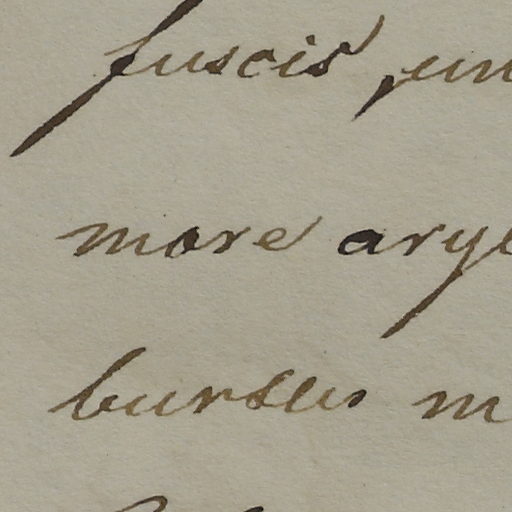 fuscis, un
more arge
bursus m